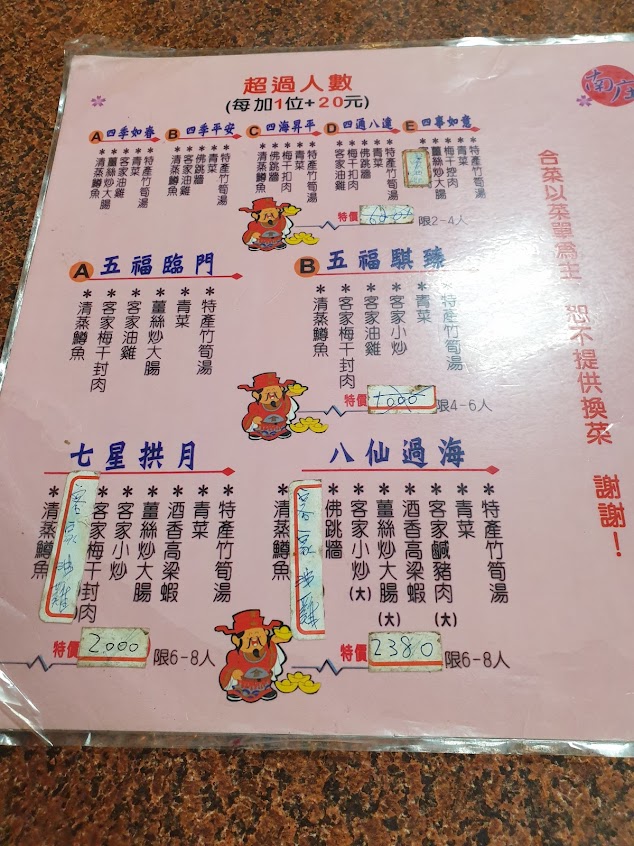 超過人數
(每加1位+20元)
南庄
合菜以菜單為主 恕不提供換菜 謝謝！
A 四季如春
*特產竹筍湯
*青菜
*客家油雞
*薑絲炒大腸
*清蒸鱒魚
B 四季平安
*特產竹筍湯
*青菜
*佛跳牆
*客家油雞
*清蒸鱒魚
C 四海昇平
*特產竹筍湯
*青菜
*梅干扣肉
*佛跳牆
*清蒸鱒魚
D 四通八達
*特產竹筍湯
*青菜
*佛跳牆
*梅干扣肉
*客家油雞
E 四事如意
*特產竹筍湯
*青菜
*梅干扣肉
*薑絲炒大腸
特價
限2-4人
A 五福臨門
*特產竹筍湯
*青菜
*薑絲炒大腸
*客家油雞
*客家梅干封肉
*清蒸鱒魚
B 五福騏臻
*特產竹筍湯
*青菜
*客家小炒
*客家油雞
*客家梅干封肉
*清蒸鱒魚
特價
限4-6人
七星拱月
*特產竹筍湯
*青菜
*酒香高梁蝦
*薑絲炒大腸
*客家小炒
*客家梅干封肉
油雞
*清蒸鱒魚
特價 2000 限6-8人
八仙過海
*特產竹筍湯
*青菜
*客家鹹豬肉(大)
*酒香高梁蝦
*薑絲炒大腸(大)
*客家小炒(大)
*佛跳牆
油雞
*清蒸鱒魚
特價 2380 限6-8人